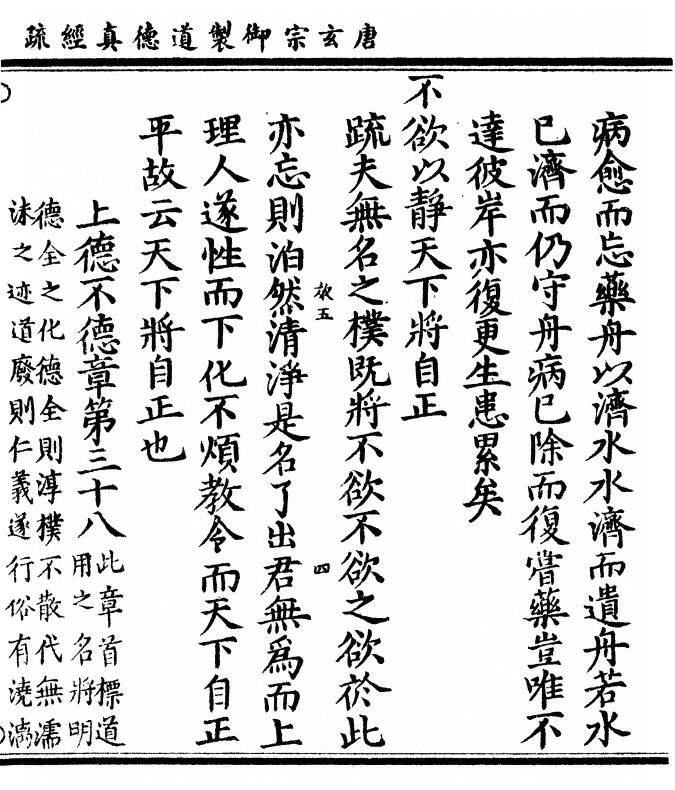 唐玄宗御製道德真經疏
病愈而忘藥舟以濟水水濟而遺舟若水
已濟而仍守舟病已除而復嘗藥豈唯不
達彼岸亦復更生患累矣
不欲以靜天下將自正
疏夫無名之樸既將不欲不欲之欲於此
效五　四
亦忘則泊然清淨是名了出君無為而上
理人遂性而下化不煩教令而天下自正
平故云天下將自正也
上德不德章第三十八
此章首標道
用之名將明
德全之化德全則淳樸不散代無濡
沫之迹道廢則仁義遂行俗有澆漓